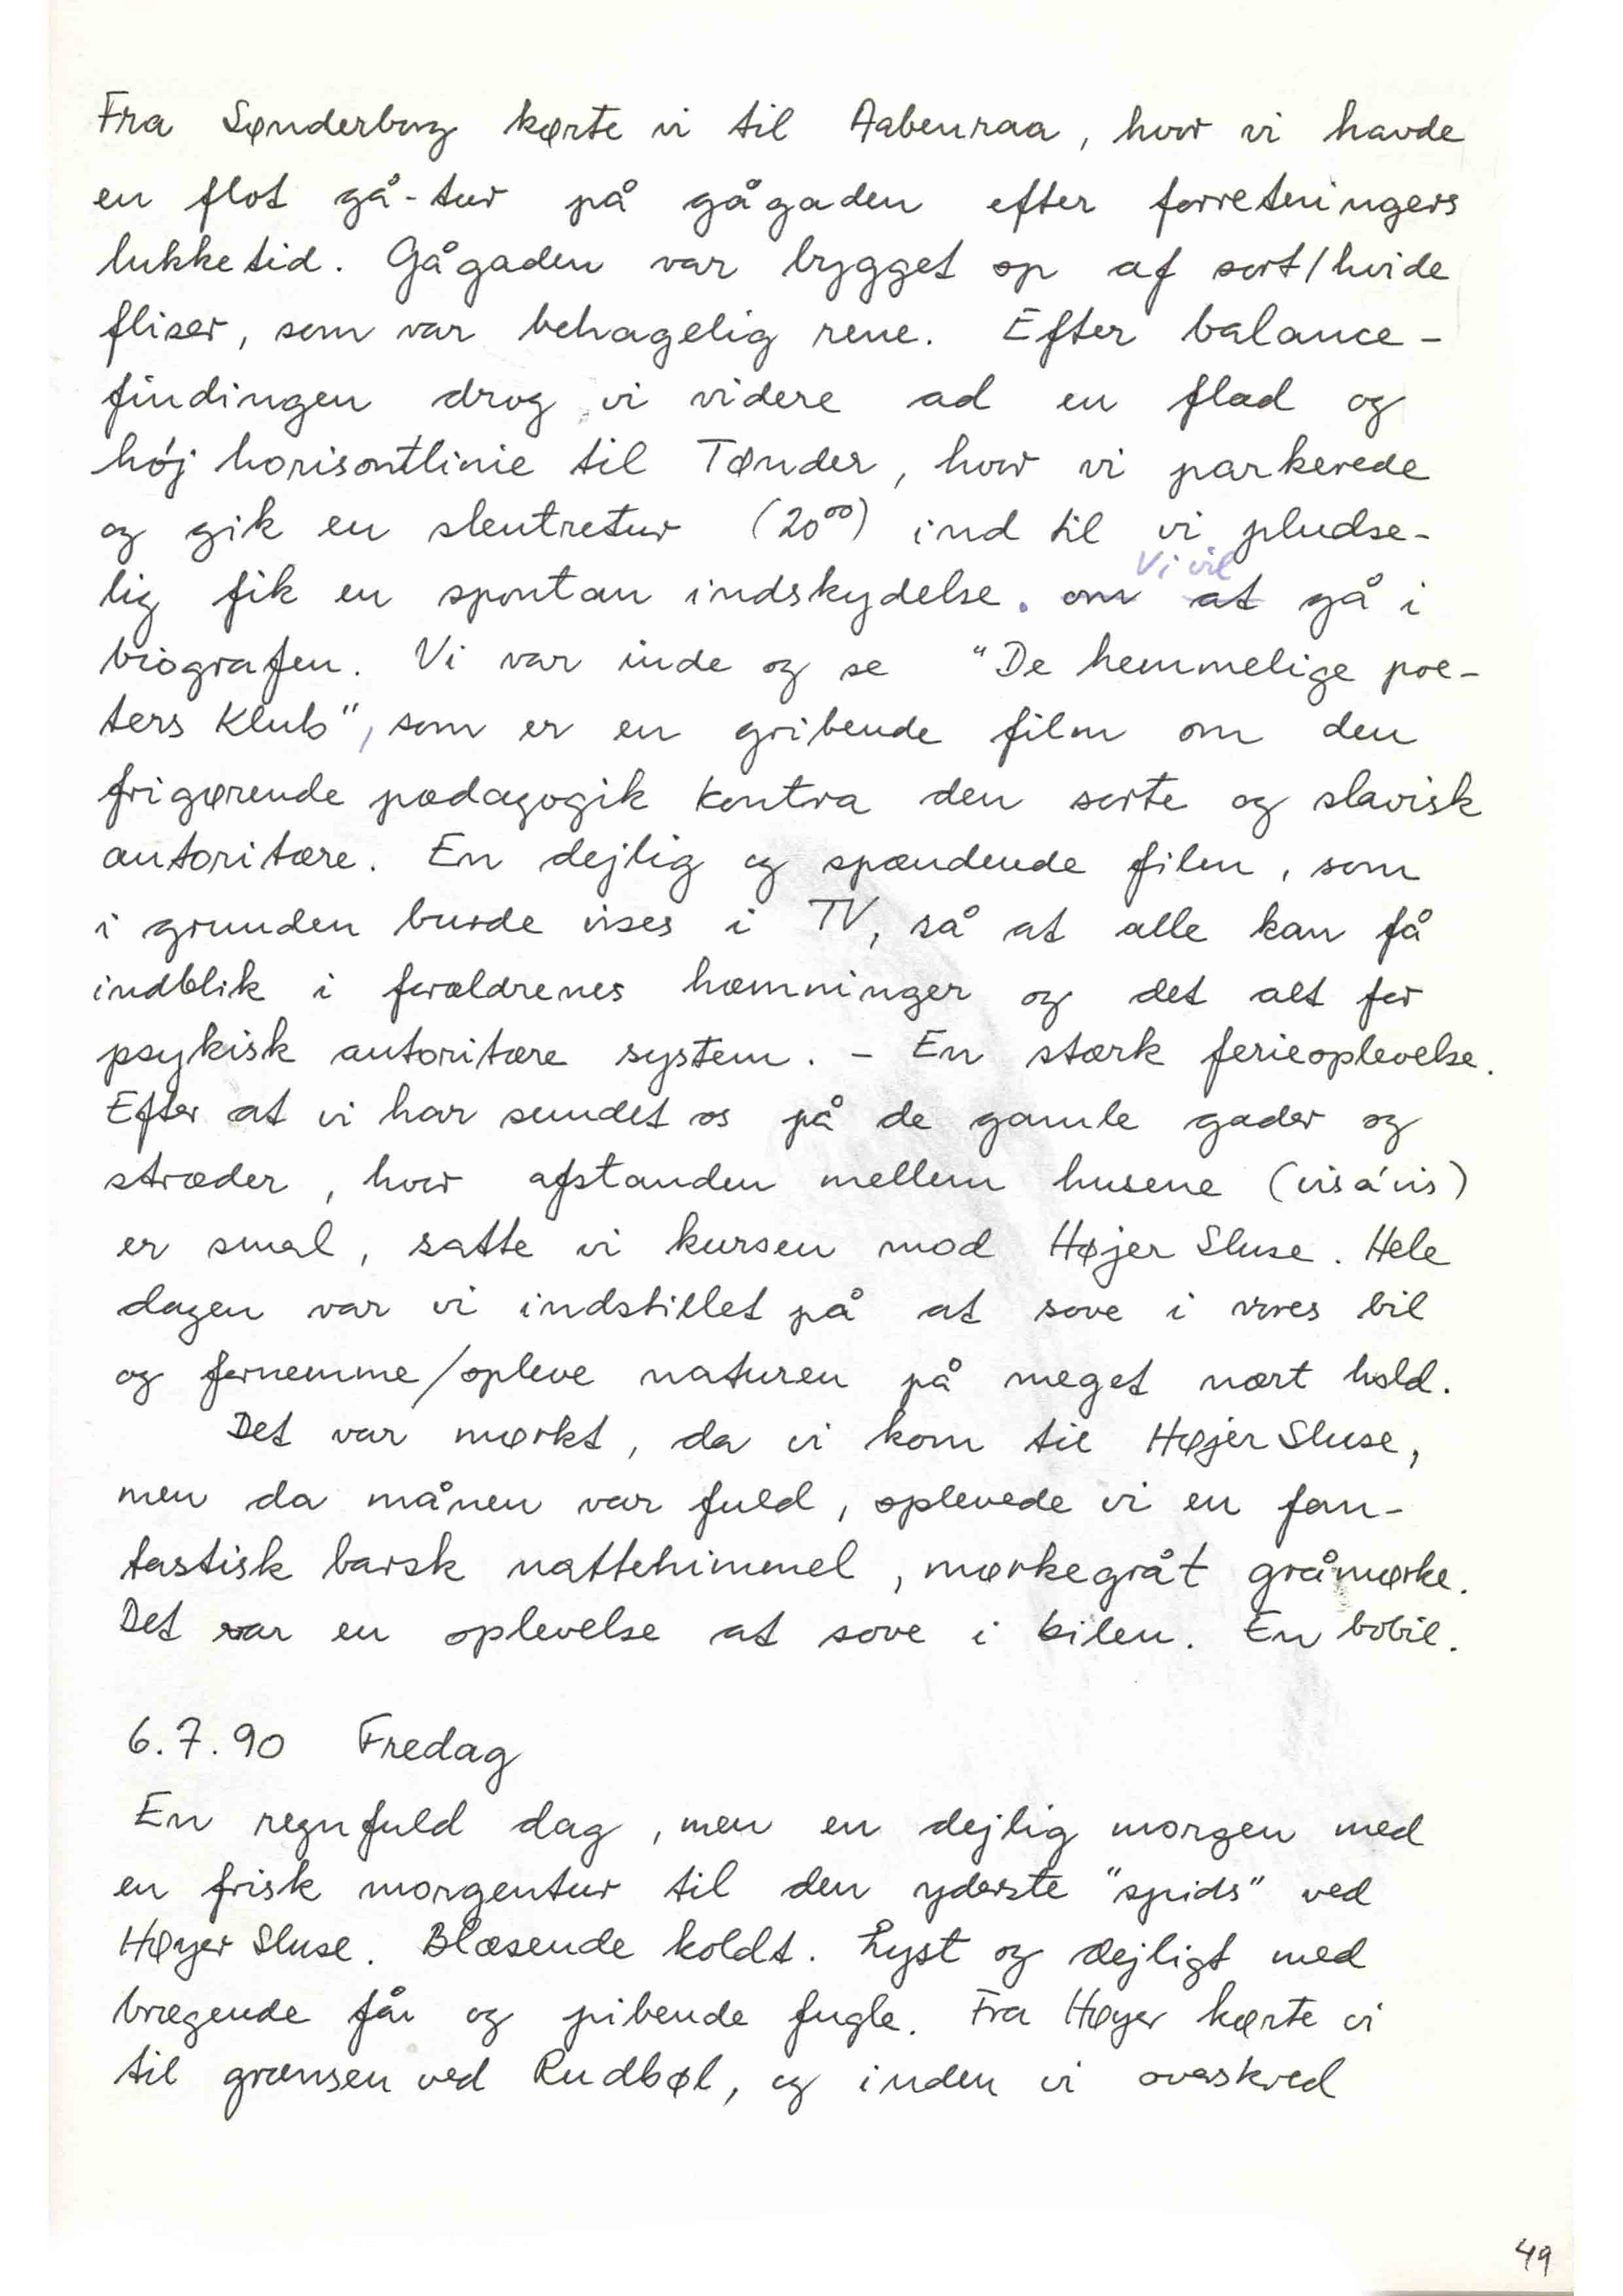 Fra Sønderborg kørte vi til Aabenraa, hvor vi havde
en flot gå-tur på gågaden efter forretningers
lukketid. Gågaden var bygget op af sort/hvide
fliser, som var behagelig rene. Efter balance-
findingen drog vi videre ad en flad og
høj horisontlinie til Tønder, hvor vi parkerede
og gik en slentretur (20⁰⁰) ind til vi pludse-
lig fik en spontan indskydelse. ~~om at~~ Vi vil gå i
biografen. Vi var inde og se "De hemmelige poe-
ters Klub", som er en gribende film om den
frigørende pædagogik kontra den sorte og slavisk
autoritære. En dejlig og spændende film, som
i grunden burde vises i TV, så at alle kan få
indblik i forældrenes hæmninger og det alt for
psykisk autoritære system. - En stærk ferieoplevelse.
Efter at vi har sundet os på de gamle gader og
stræder, hvor afstanden mellem husene (vis á vis)
er smal, satte vi kursen mod Højer Sluse. Hele
dagen var vi indstillet på at sove i vores bil
og fornemme/opleve naturen på meget nært hold.
Det var mørkt, da vi kom til Højer Sluse,
men da månen var fuld, oplevede vi en fan-
tastisk barsk nattehimmel, mørkegråt gråmørke.
Det var en oplevelse at sove i bilen. En bobil.
6.7.90 Fredag
En regnfuld dag, men en dejlig morgen med
en frisk morgentur til den yderste "spids" ved
Høyer Sluse. Blæsende koldt. Lyst og dejligt med
brægende får og pibende fugle. Fra Høyer kørte vi
til grænsen ved Rudbøl, og inden vi overskred
49